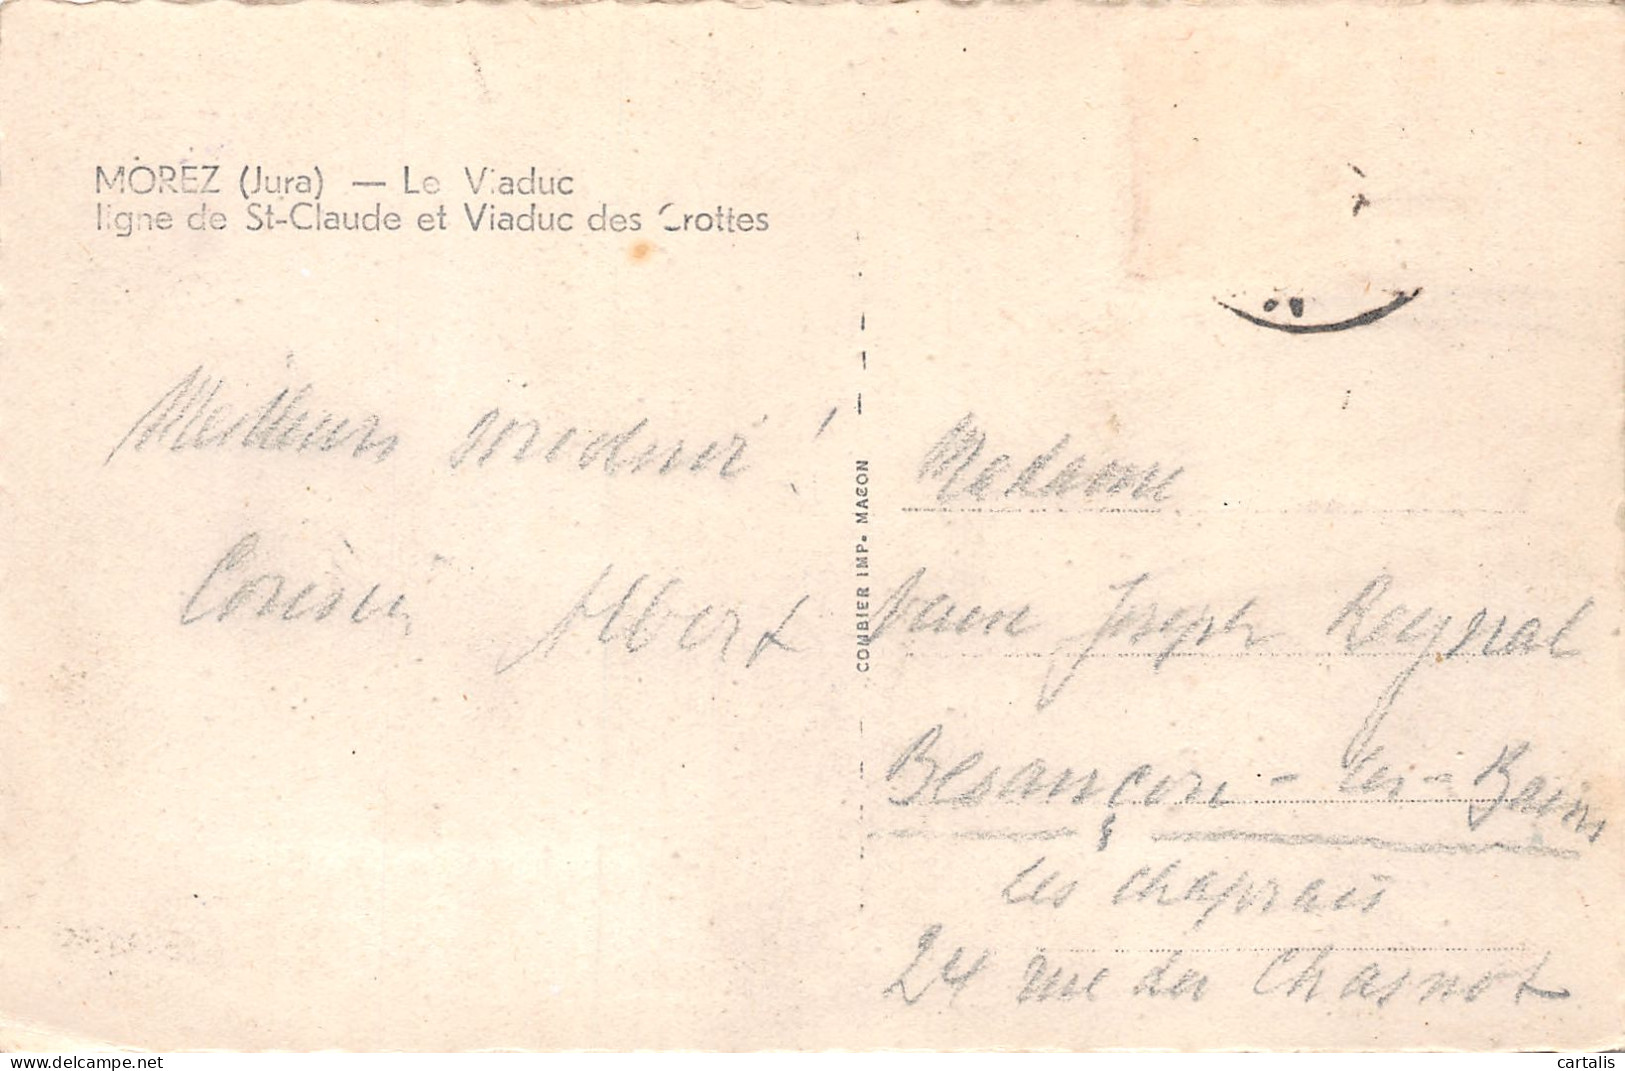 MOREZ (Jura) — Le Viaduc
ligne de St-Claude et Viaduc des Crottes
Meilleurs souvenir !
Cousin Albert
COMBIER IMP. MACON
Madame
Joseph Reynal
Besançon - les - Bains
Les Chaprais
24 rue du Chasnot
cartalis
delcampe.net